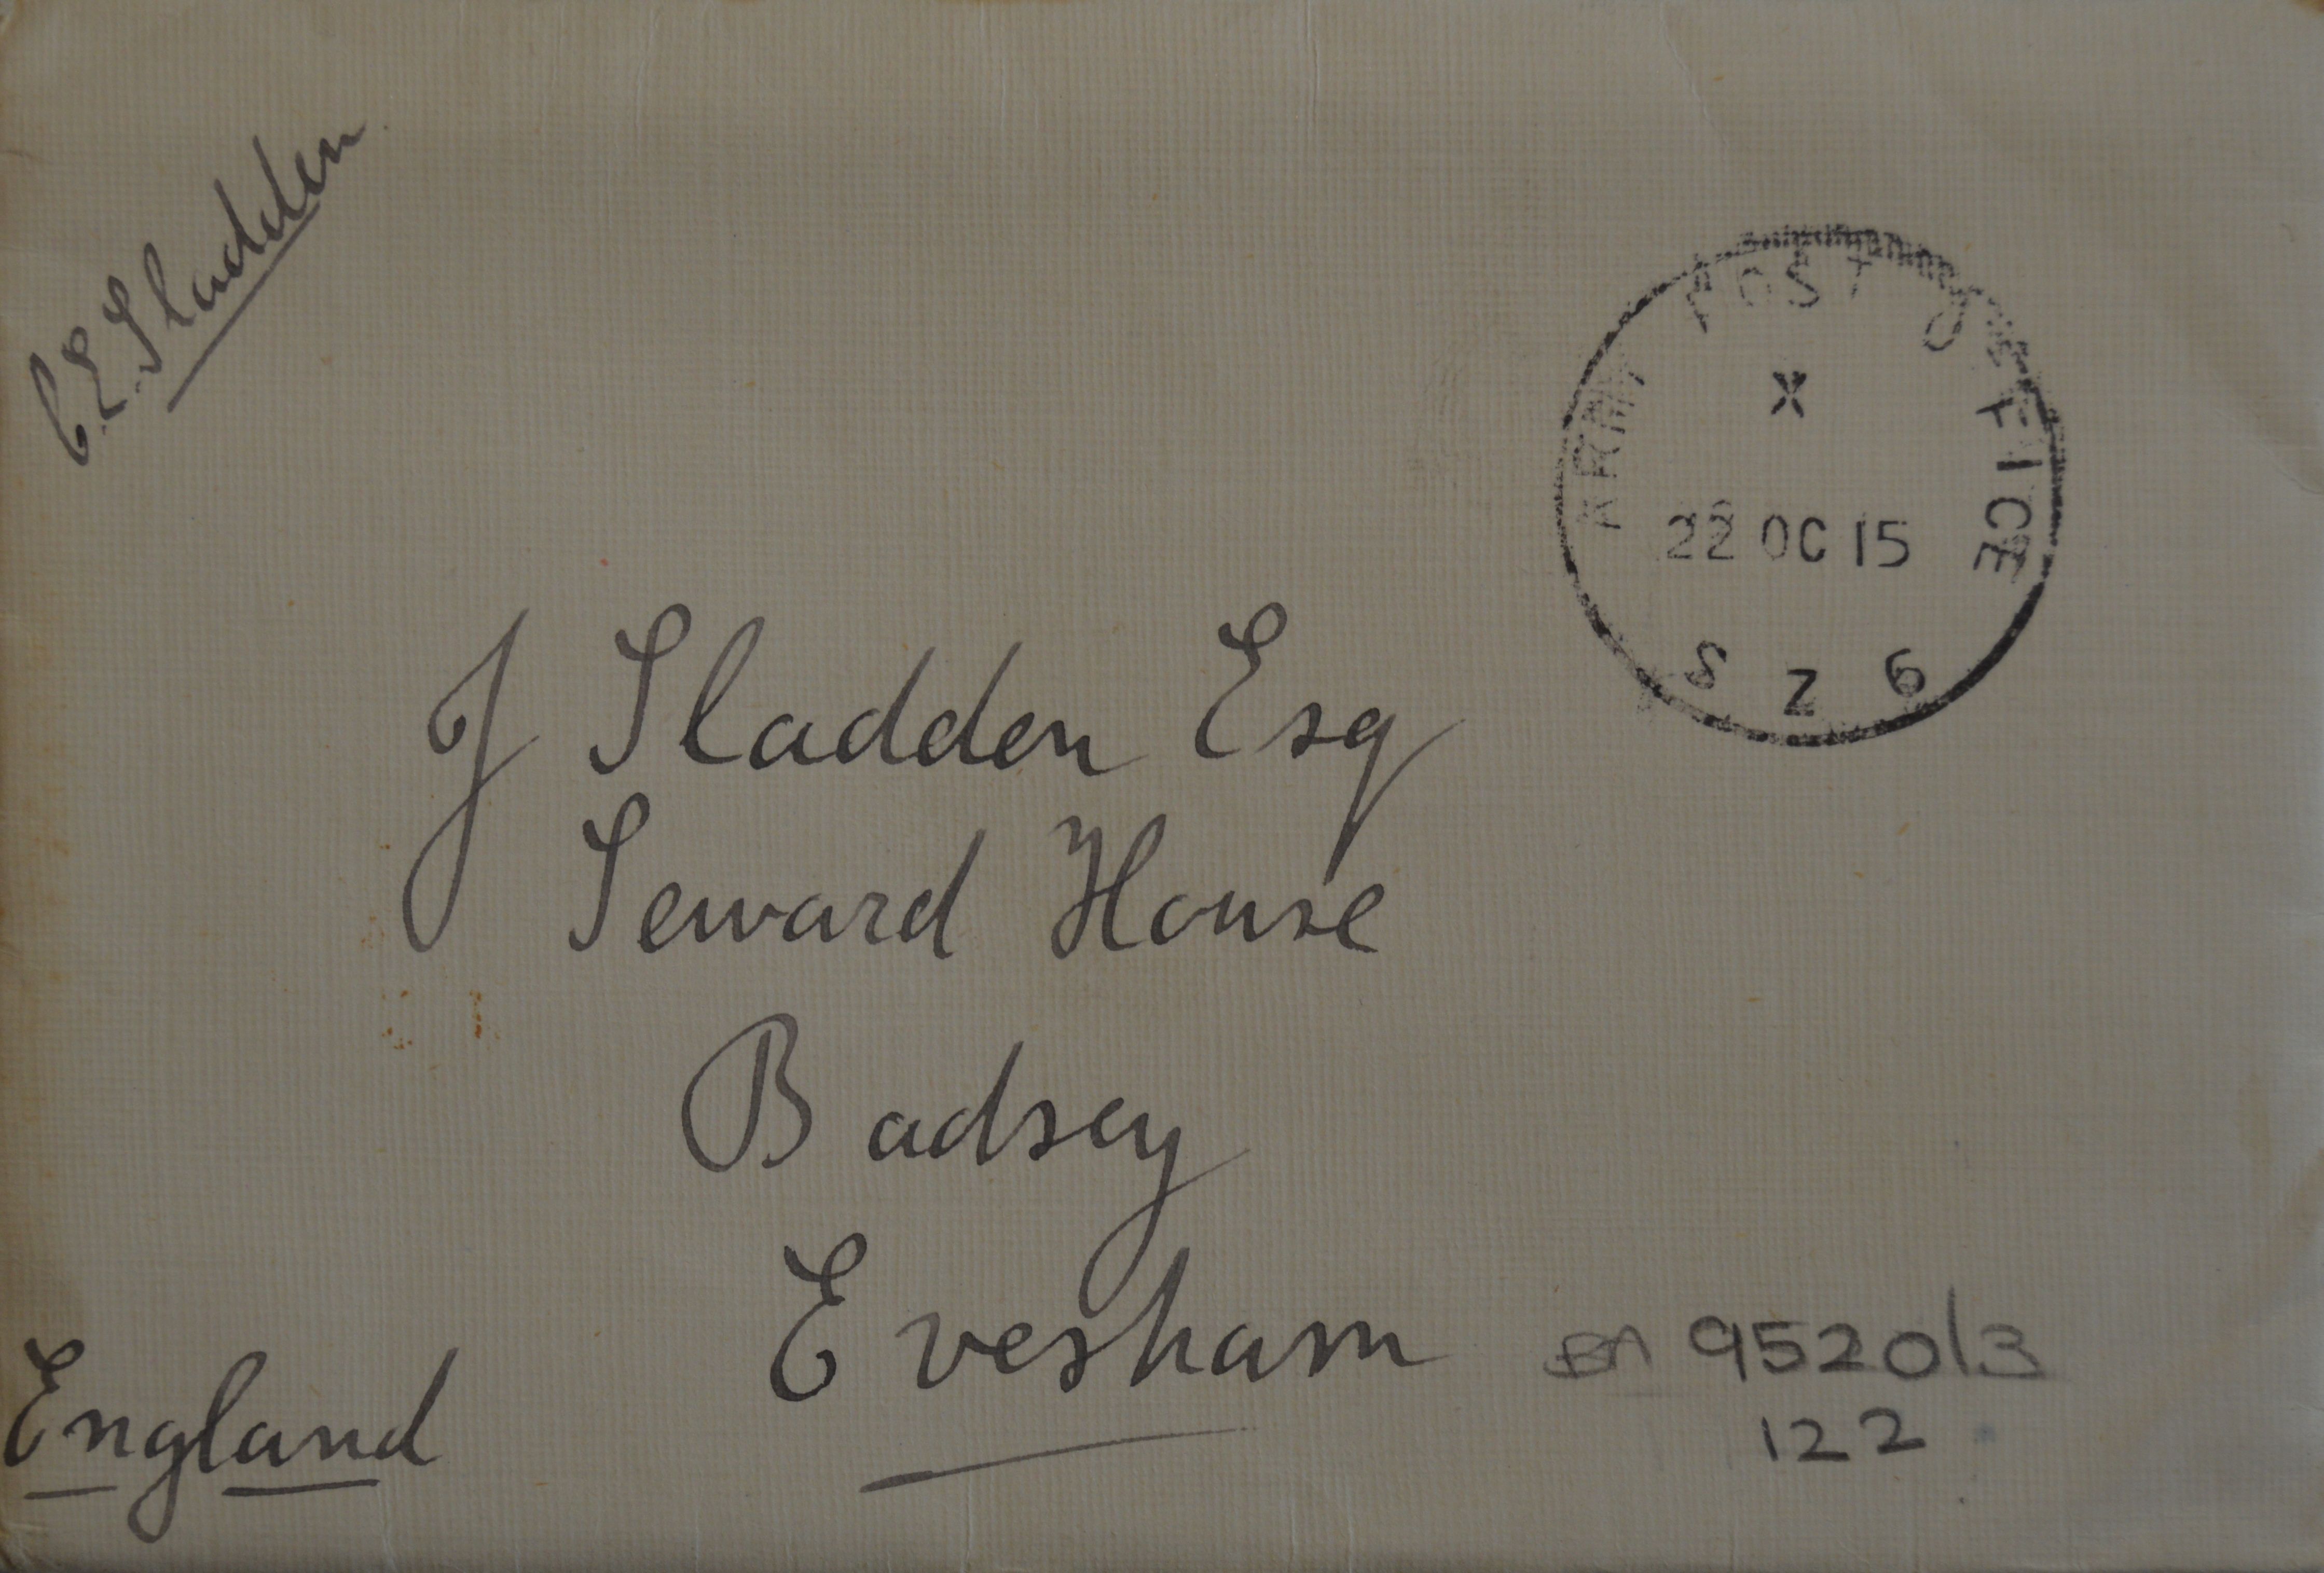 C.E. Sladden
ARMY POST OFFICE
X
22 OC 15
S Z 6
J Sladden Esq
Seward House
Badsey
Evesham
England
BA 9520/3
122